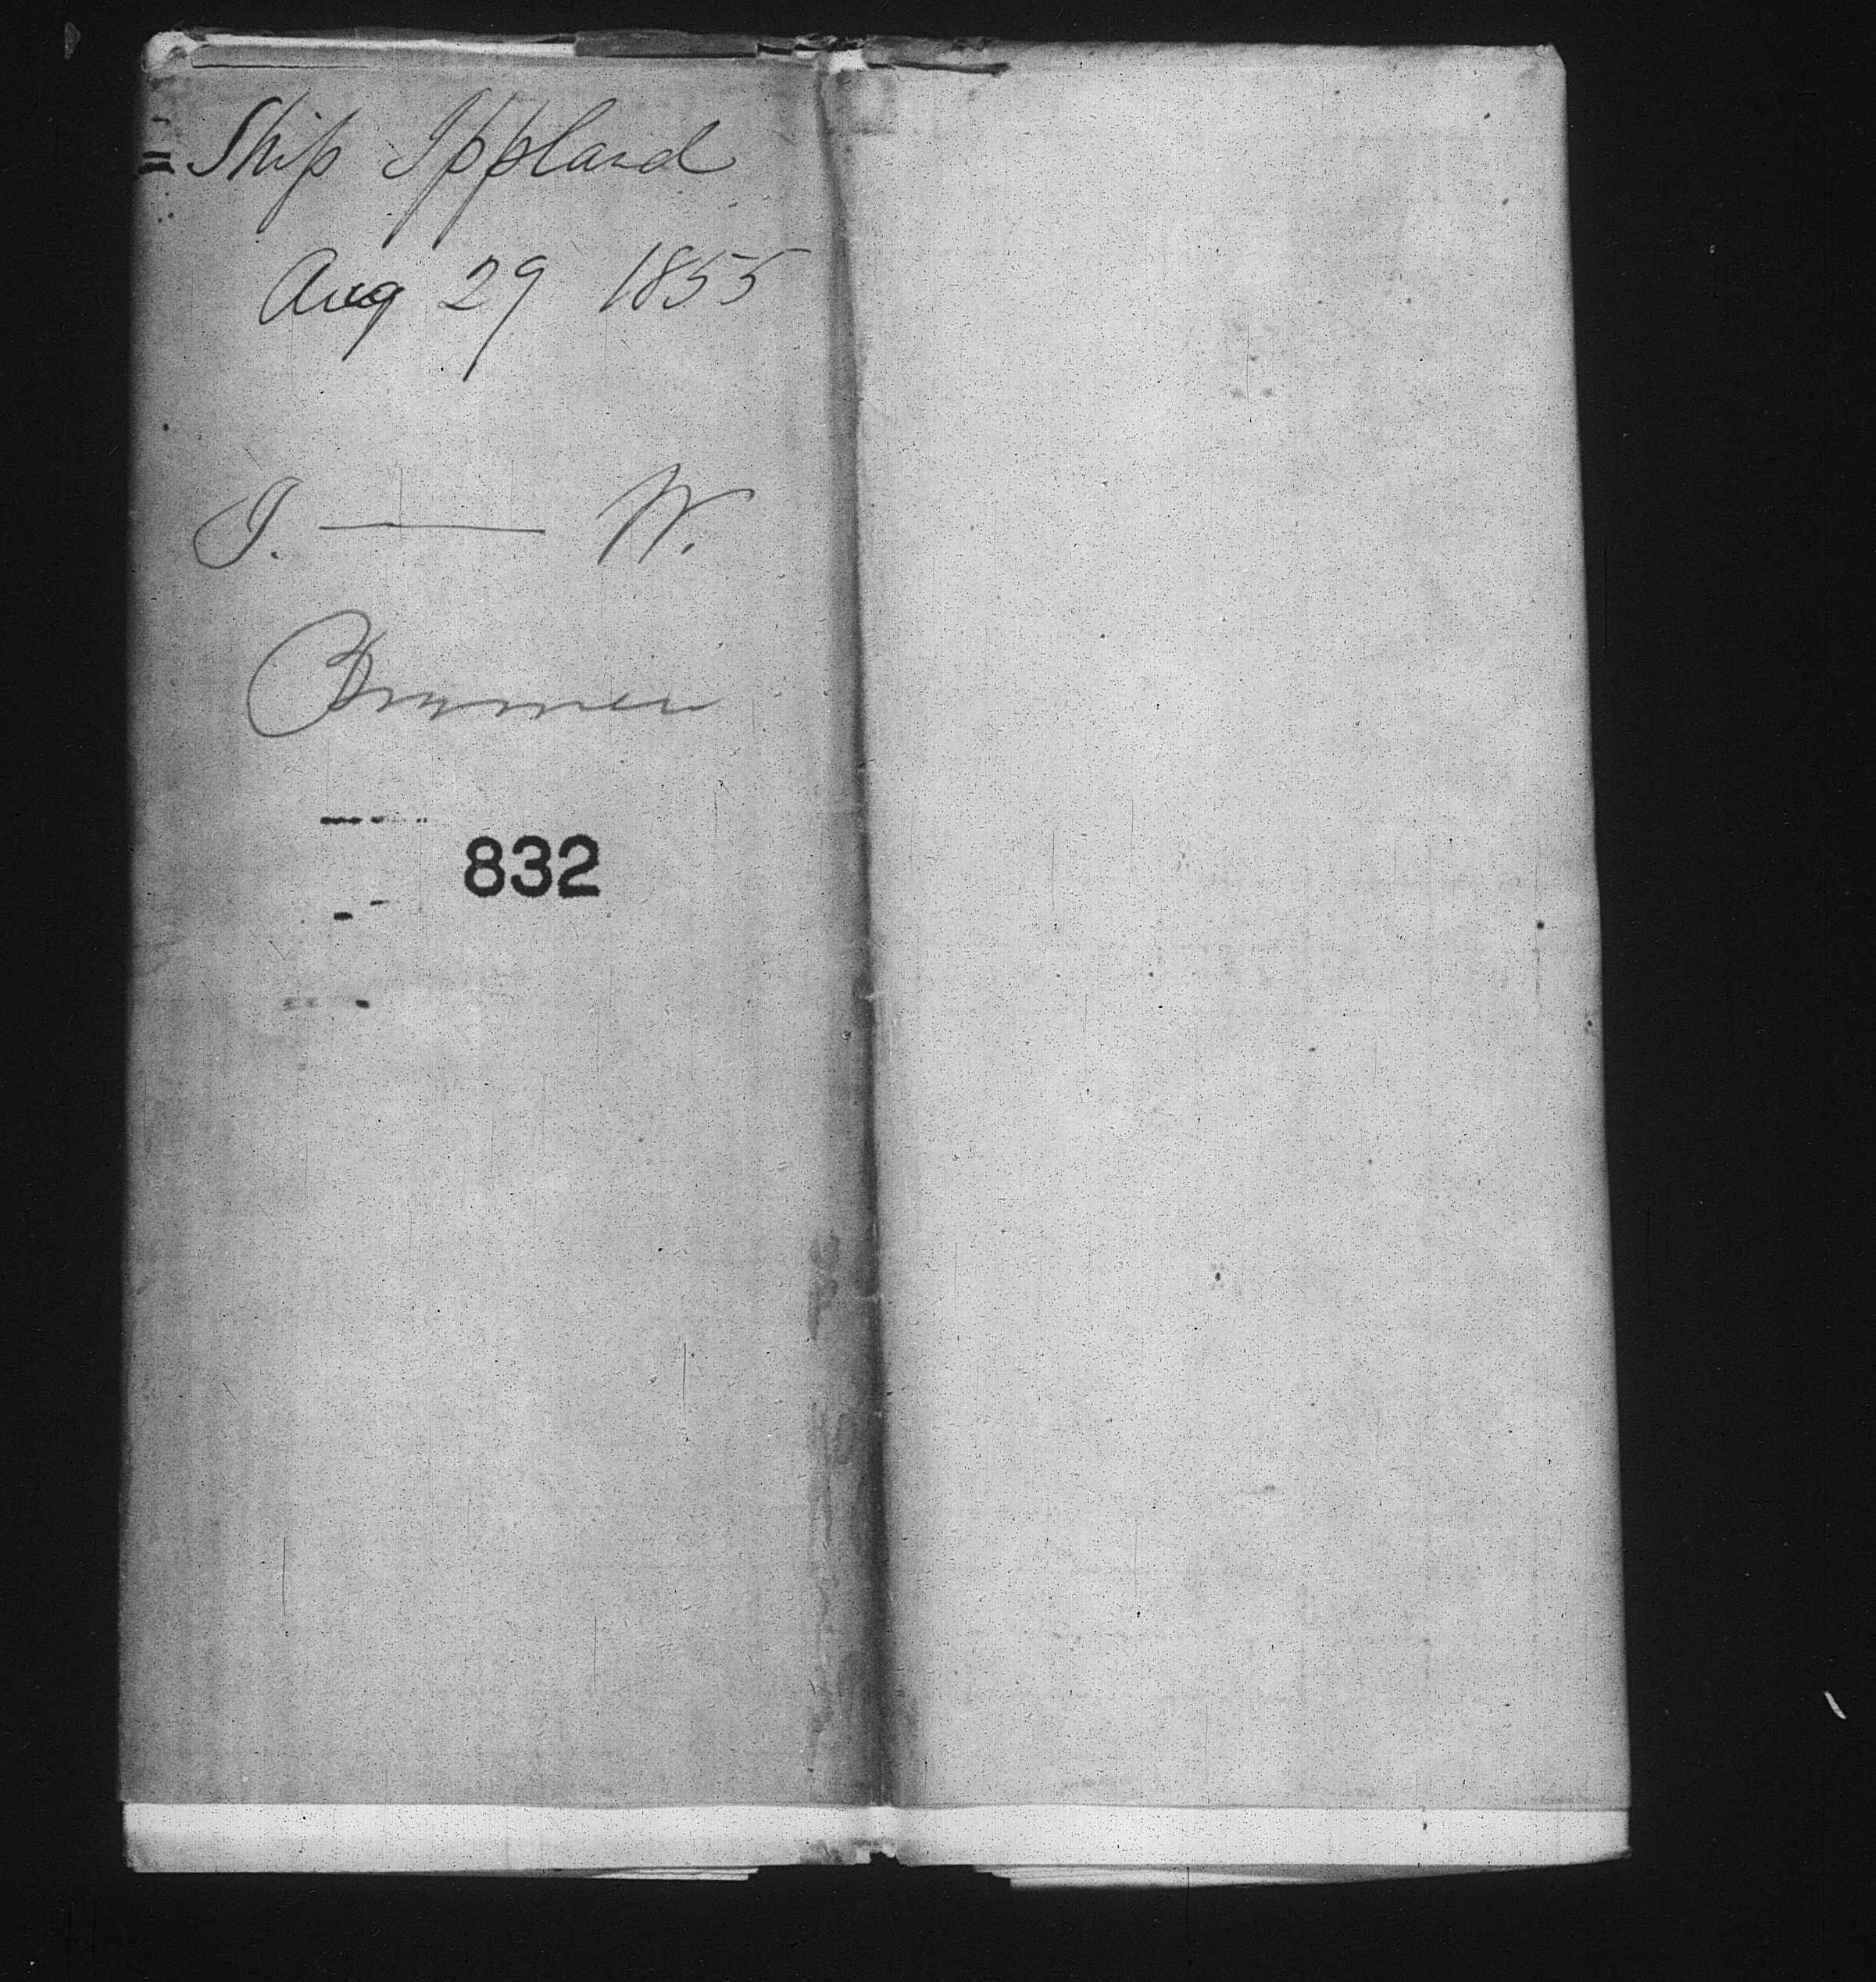 Ship Ippland
Aug 29 1855
I. — W.
Bremen
832